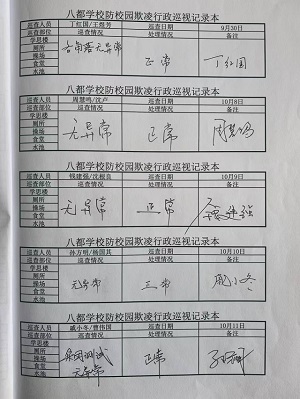 八都学校防校园欺凌行政巡视记录本
巡查人员 丁红国/王得芳 巡查日期 9月30日
巡查部位 巡查情况 处理情况 备注
学思楼
厕所 无异常 正常 丁红国
操场
食堂
水池
八都学校防校园欺凌行政巡视记录本
巡查人员 周慧鸣/沈卢 巡查日期 10月8日
巡查部位 巡查情况 处理情况 备注
学思楼
厕所 无异常 正常 周慧鸣
操场
食堂
水池
八都学校防校园欺凌行政巡视记录本
巡查人员 钱建强/沈根良 巡查日期 10月9日
巡查部位 巡查情况 处理情况 备注
学思楼
厕所
操场 无异常 正常 钱建强
食堂
水池
八都学校防校园欺凌行政巡视记录本
巡查人员 孙方明/杨国其 巡查日期 10月10日
巡查部位 巡查情况 处理情况 备注
学思楼
厕所
操场 无异常 正常 戚小冬
食堂
水池
八都学校防校园欺凌行政巡视记录本
巡查人员 戚小冬/曹伟国 巡查日期 10月11日
巡查部位 巡查情况 处理情况 备注
学思楼
厕所
操场 正常
食堂 无异常
水池